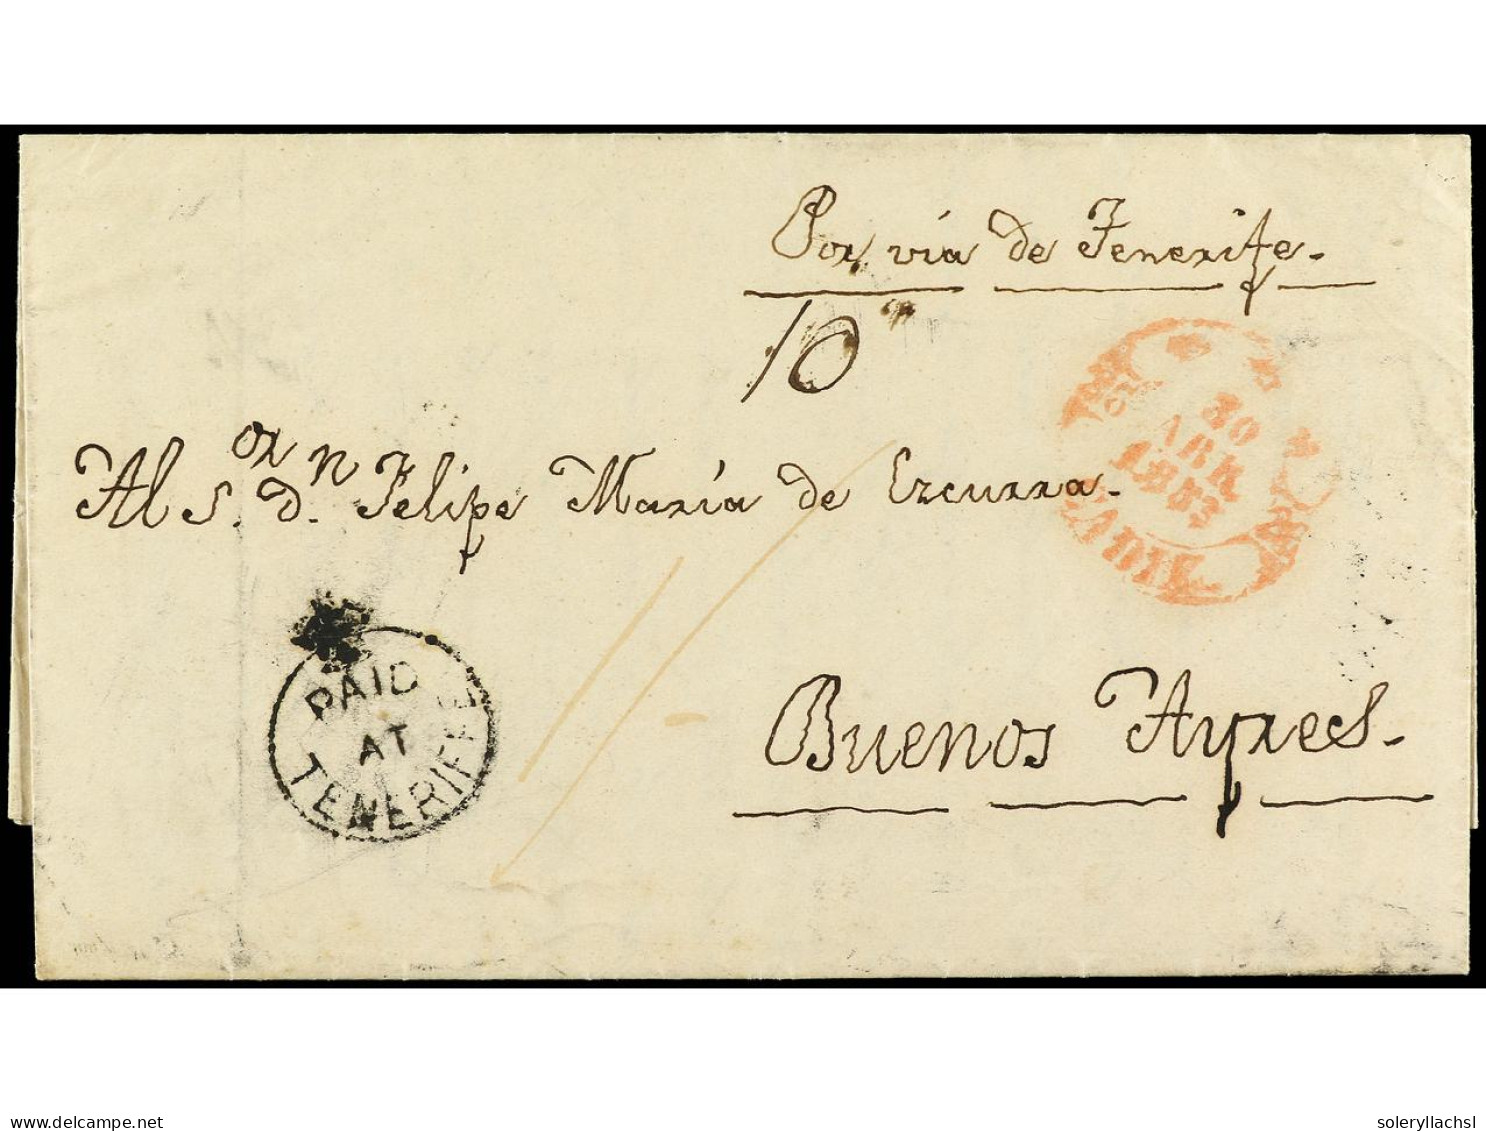 Por vía de Tenerife.
10
Al S.or D.n Felipe María de Ezcurra.
30
ABR
1853
CADIZ
PAID
AT
TENERIFFE
Buenos Ayres.
delcampe.net
soleryllachsl